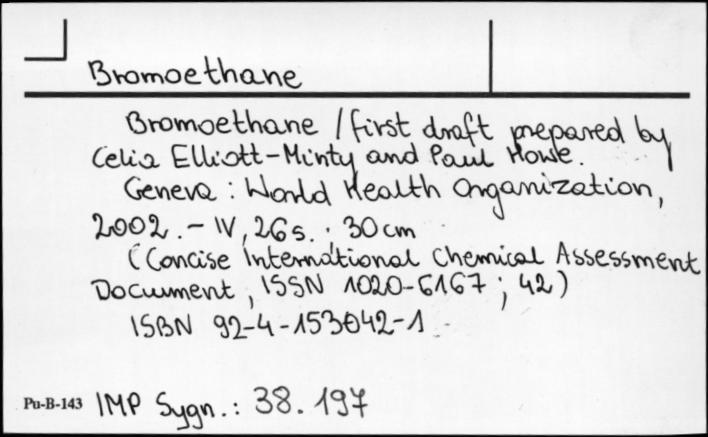 Bromoethane
Bromoethane / first draft prepared by
Celia Elliott-Minty and Paul Howe.
Geneva : World Health Organization,
2002. - IV, 26 s. : 30 cm
(Concise International Chemical Assessment
Document, ISSN 1020-6167 ; 42)
ISBN 92-4-153042-1
Pu-B-143 IMP Sygn.: 38.197